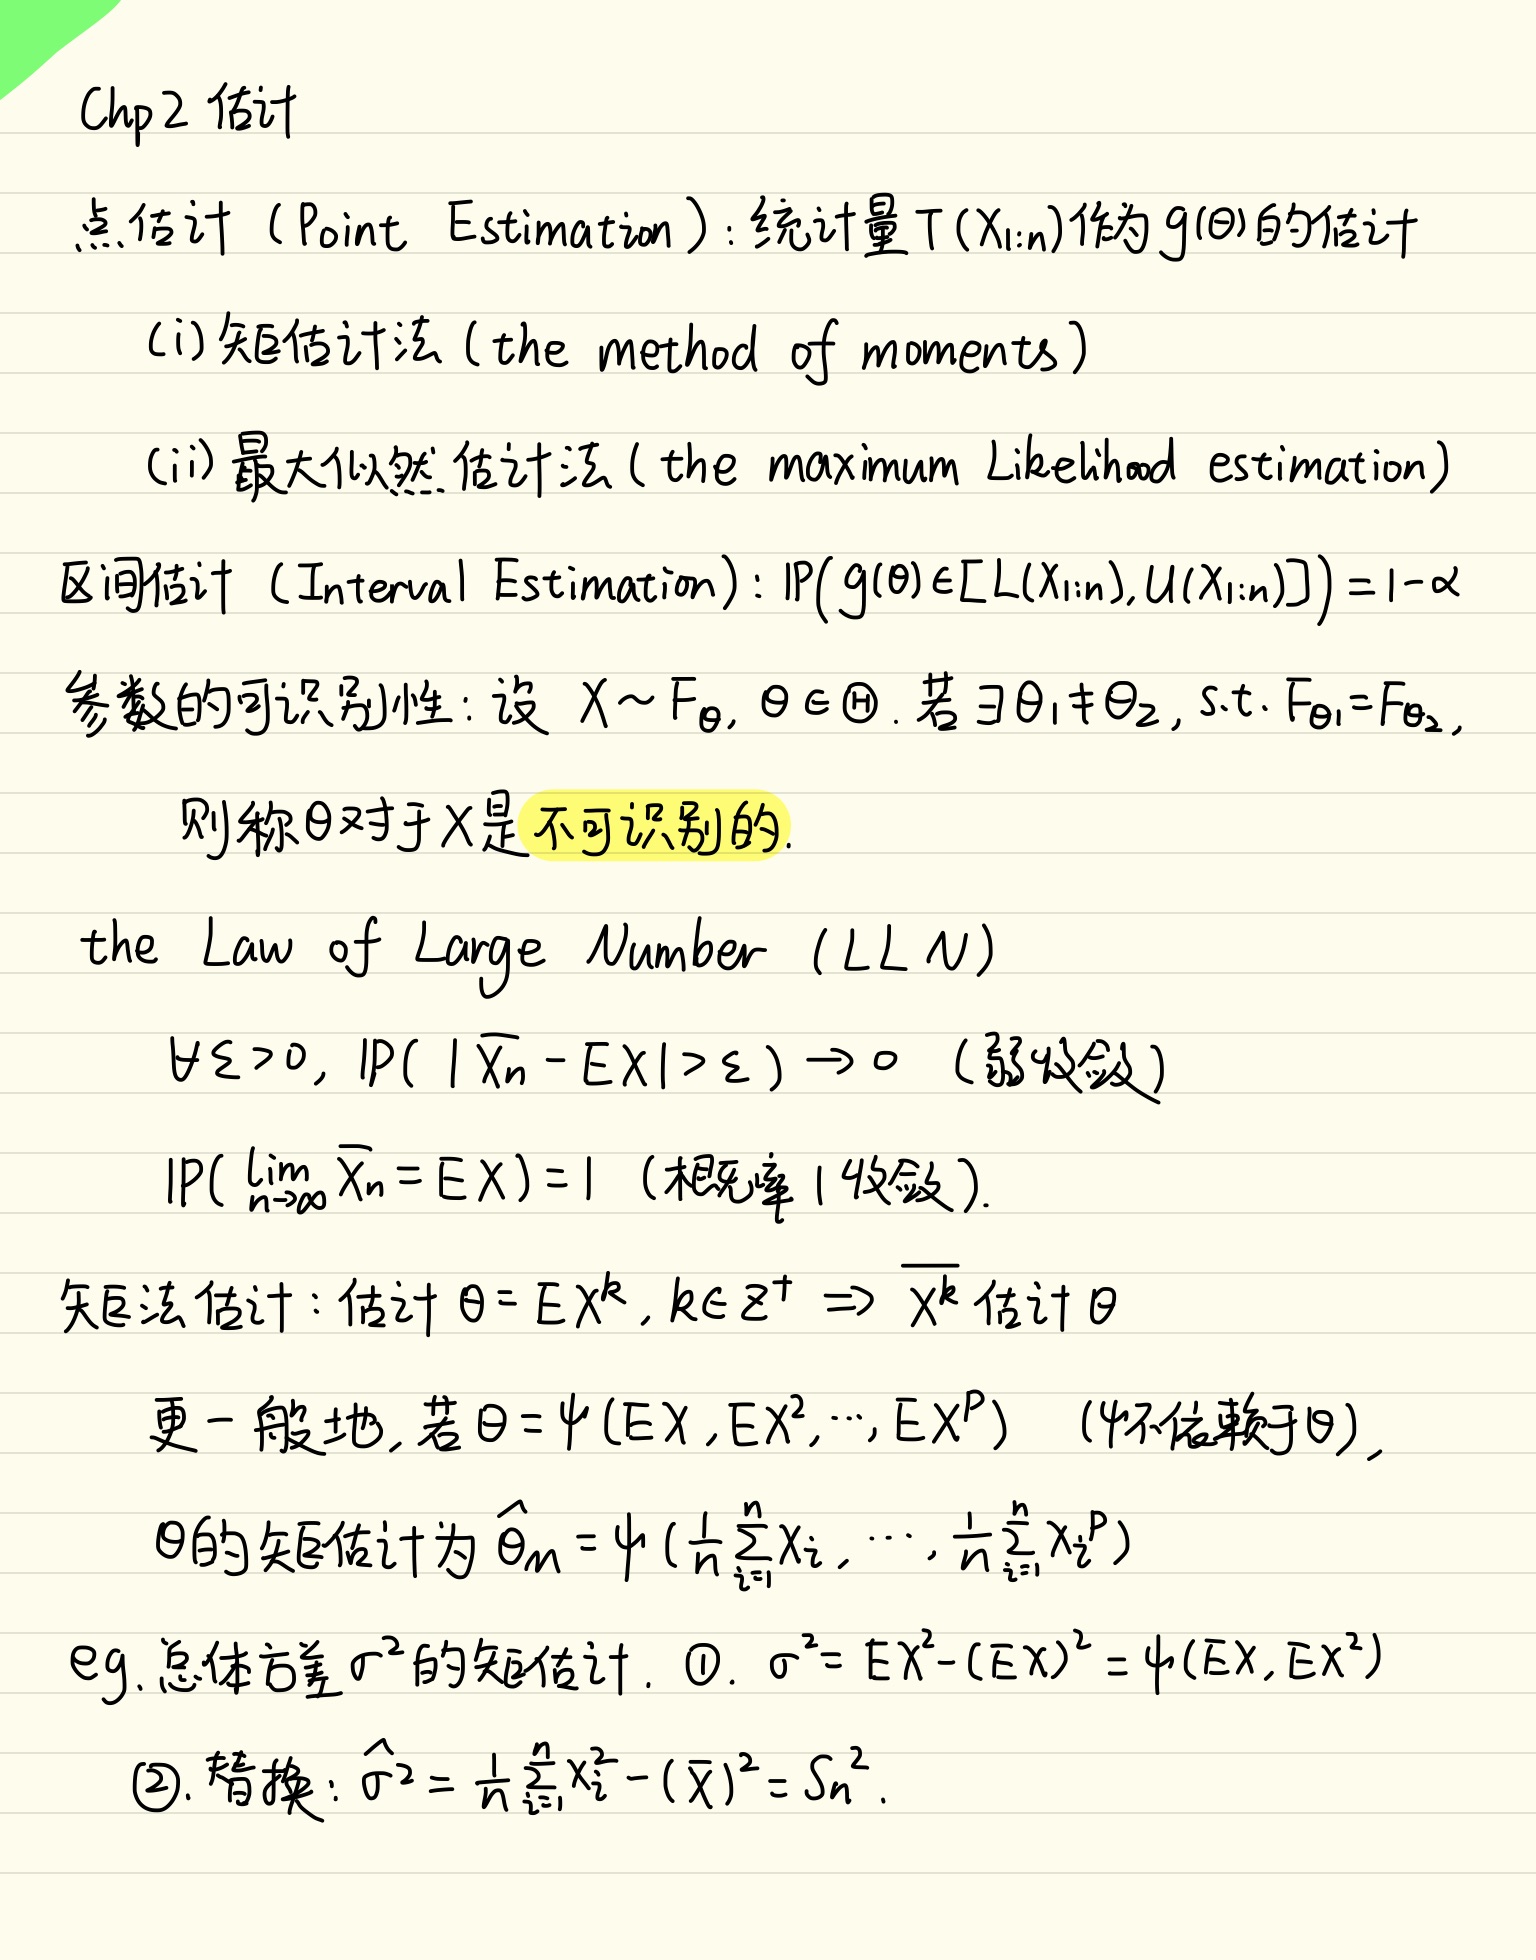 Chp2 估计
点估计 (Point Estimation): 统计量 T(X₁:ₙ) 作为 g(θ) 的估计
(i) 矩估计法 (the method of moments)
(ii) 最大似然估计法 (the maximum Likelihood estimation)
区间估计 (Interval Estimation): ℙ(g(θ)∈[L(X₁:ₙ), U(X₁:ₙ)]) = 1-α
参数的可识别性: 设 X ~ F_θ, θ∈Θ. 若 ∃θ₁≠θ₂, s.t. F_θ₁ = F_θ₂,
则称θ对于X是不可识别的.
the Law of Large Number (LLN)
∀ε>0, ℙ( |X̄ₙ - EX| > ε ) → 0 (弱收敛)
ℙ( lim_{n→∞} X̄ₙ = EX ) = 1 (概率1收敛).
矩法估计: 估计 θ = EX^k, k∈Z⁺ ⇒ \overline{X^k} 估计 θ
更一般地, 若 θ = ψ(EX, EX², ⋯, EX^p) (ψ不依赖于θ),
θ的矩估计为 \hat{θ}_M = ψ( \frac{1}{n} \sum_{i=1}^{n} X_i, ⋯, \frac{1}{n} \sum_{i=1}^{n} X_i^p )
eg. 总体方差 σ² 的矩估计. ①. σ² = EX² - (EX)² = ψ(EX, EX²)
②. 替换: \hat{σ}² = \frac{1}{n} \sum_{i=1}^{n} X_i² - (X̄)² = Sₙ².